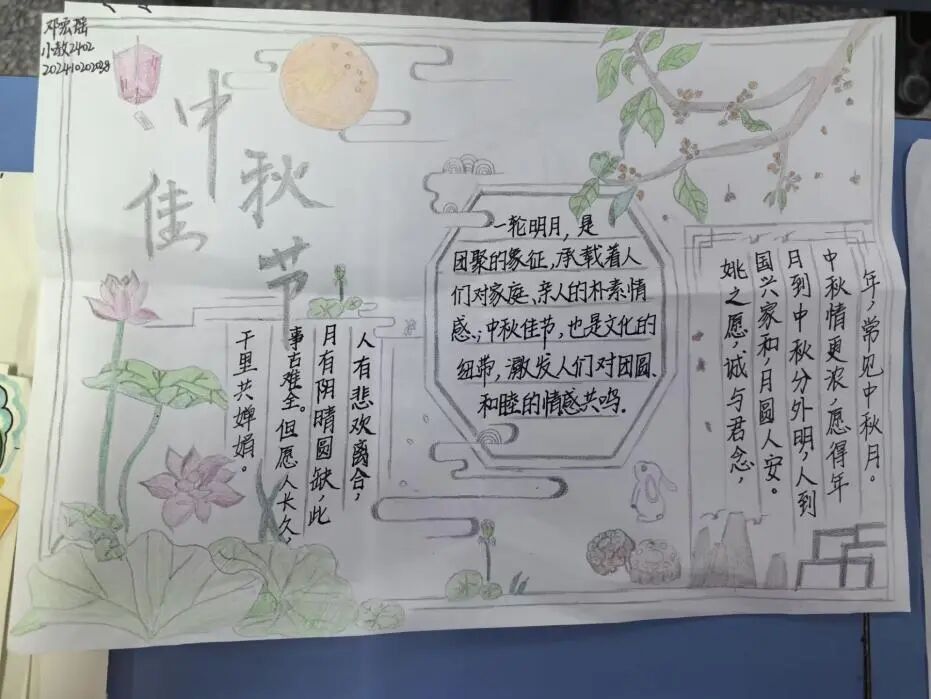 邓宏瑶
小教2402
202410202038
中秋
佳节
人有悲欢离合，
月有阴晴圆缺，此
事古难全。但愿人长久，
千里共婵娟。
一轮明月，是
团聚的象征，承载着人
们对家庭、亲人的朴素情
感；中秋佳节，也是文化的
纽带，激发人们对团圆、
和睦的情感共鸣.
姚之愿，诚与君念，
国兴家和，月圆人安。
月到中秋分外明，人到
中秋情更浓，愿得年
年，常见中秋月。